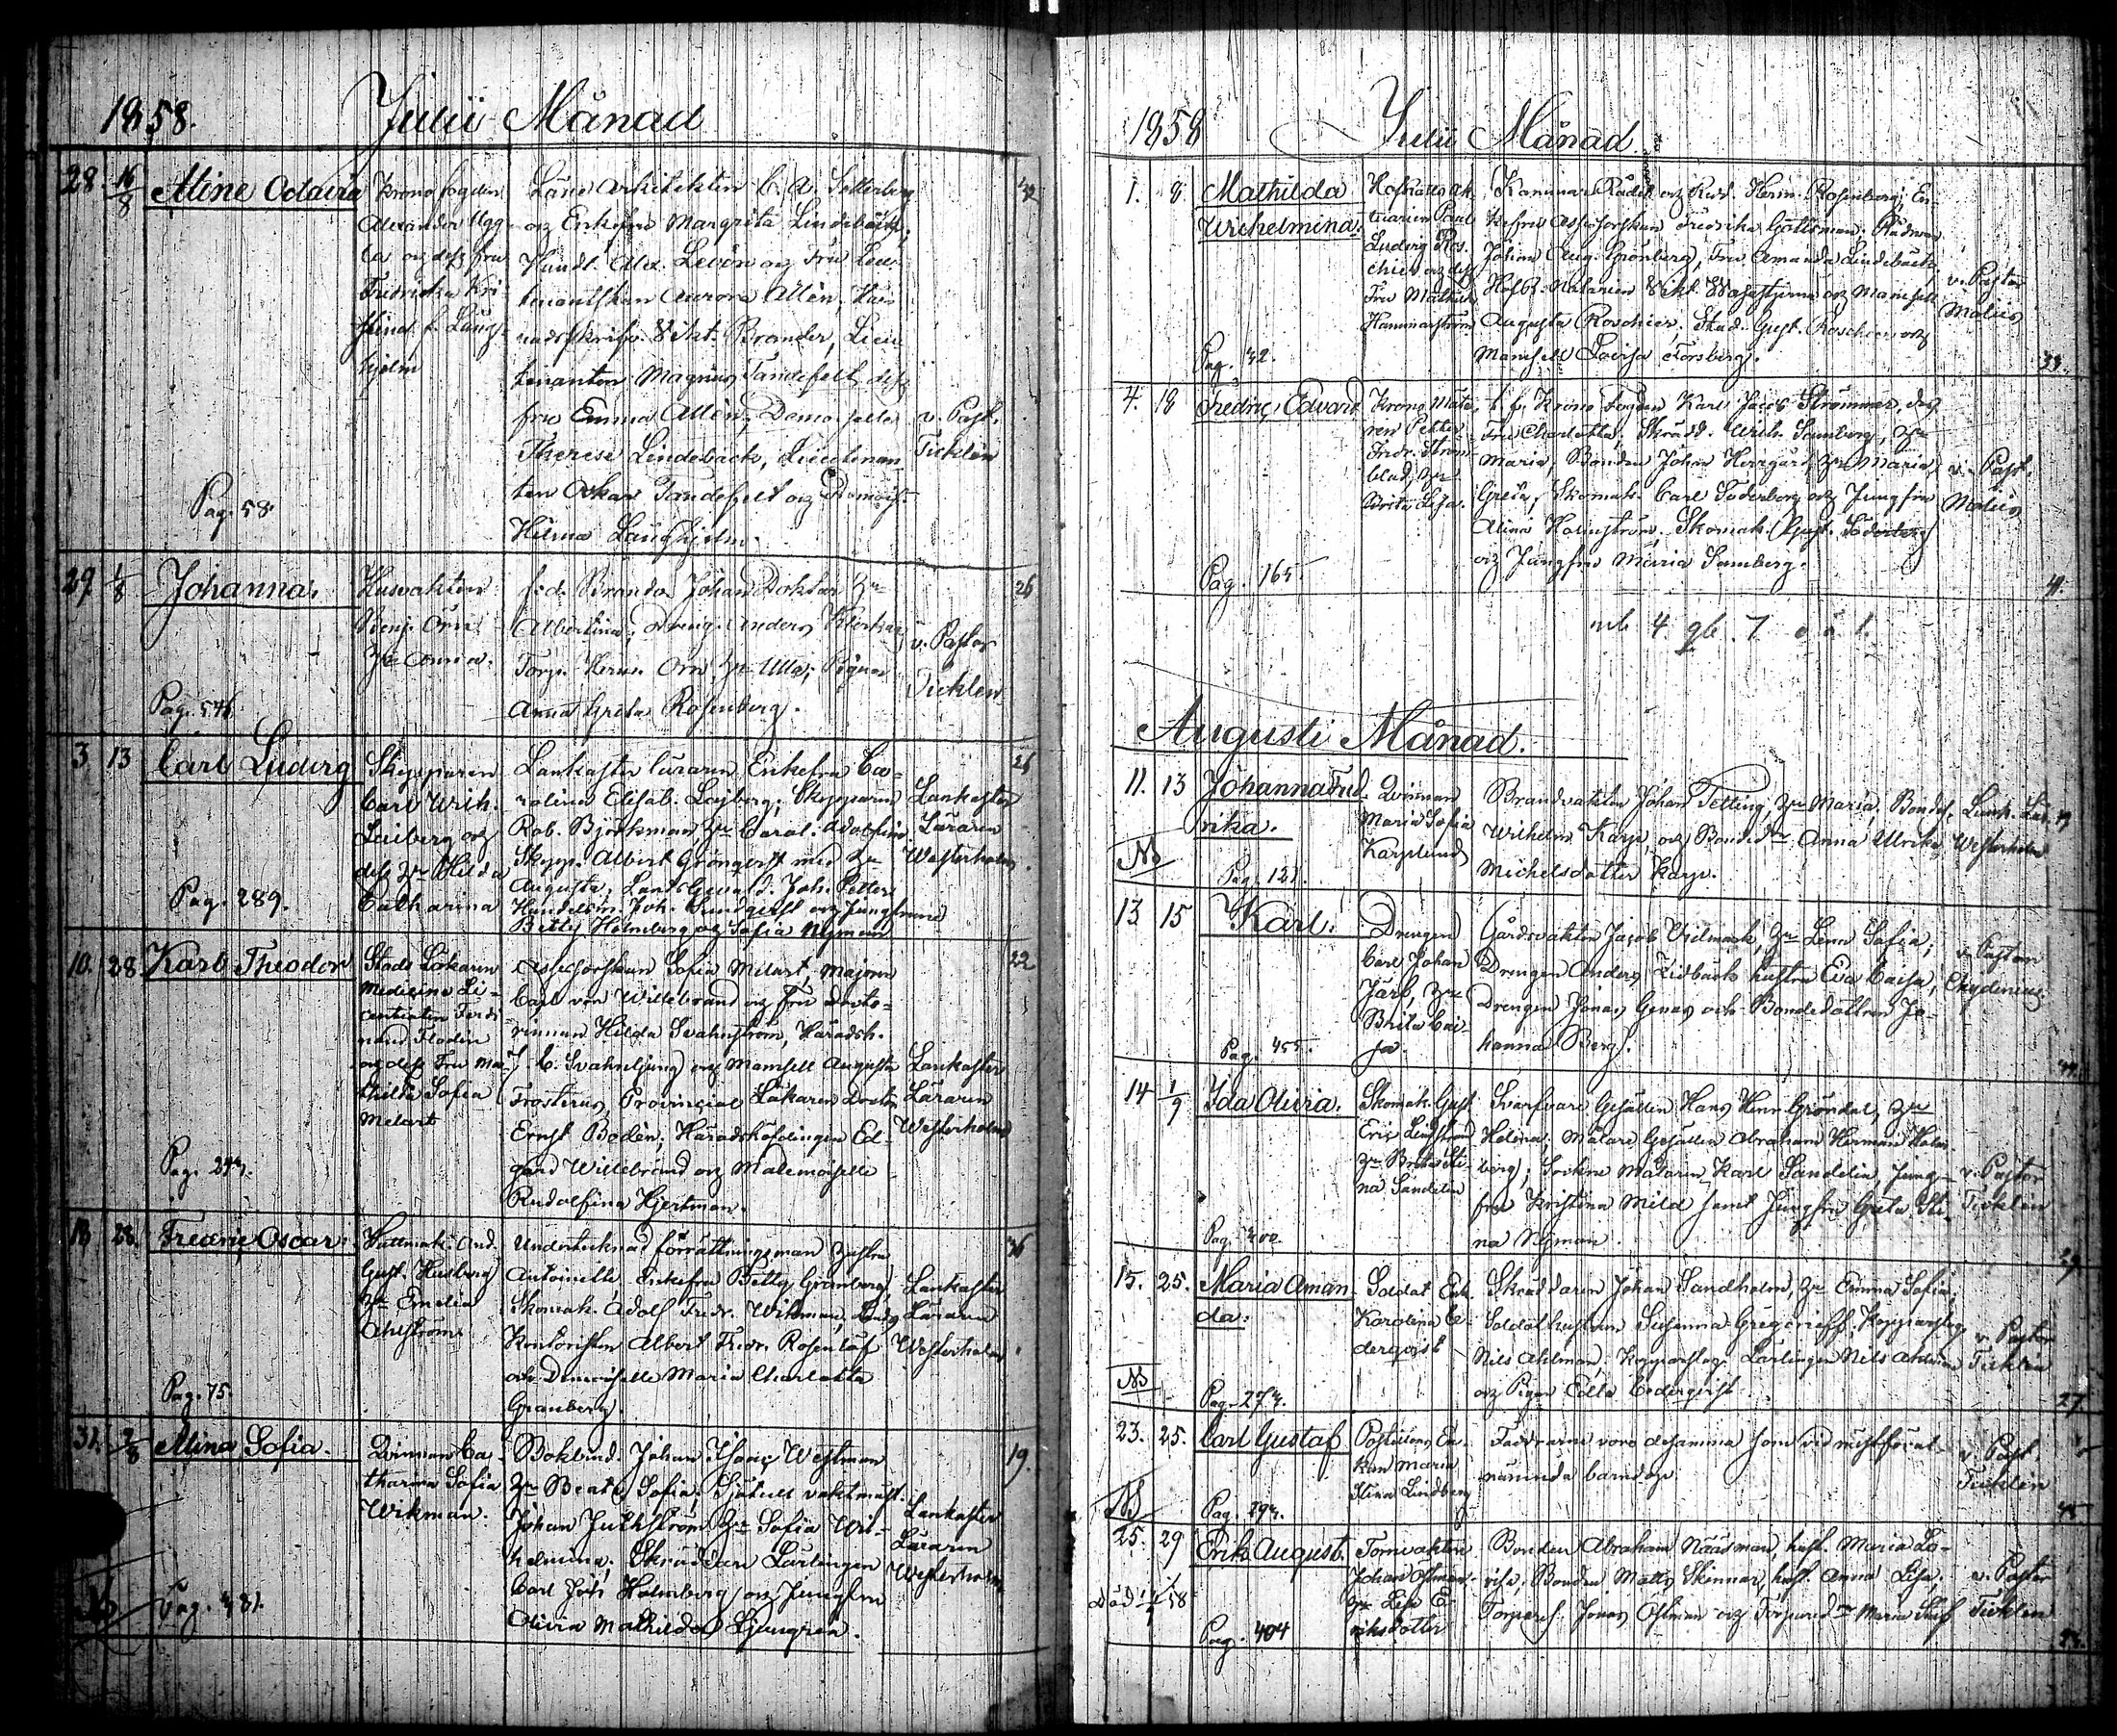 1858. Julii Månad
28. 16/8 Aline Octavia
Pag. 58.
Kronofogden
Alexander Ugg-
la och dess fru
Fredrika Kri-
stina f. Lång-
hjelm
Läns Arkitekten C. A. Setterberg
och Enkefru Margreta Lindebäck;
Handl. Alex. Levón och Fru Lieu-
tenantskan Aurora Allén,
Vikt. Brander, Lieu-
tenanten Magnus Tandefelt, dess
fru Emma Allén, Demoiselle
Therese Lindebäck, Lieutenan-
ten Oskar Tandefelt och Demois.
Hilma Långhjelm.
v. Past.
Ticklén
29. 1/8 Johanna.
Husvakten
Benj. Örn
Hu Anna.
f.d. Johan Hu
Albertina; Dreng. Anders
Torp. Herm. Örn, Hu Ulla; Pigan
Anna Greta Rosenberg.
v. Pastor
Ticklén
26
3 13 Carl Ludvig
Pag. 289.
Skepparen
Carl Wilh.
Leiberg och
dess Hu Hilda
Catharina
Lankaster läraren Enkefru Ca-
rolina Elisab. Lojberg; Skepparen
Rob. Björkman Hu Carol. Adolfina
Skepp. Albert Grönqvist med Hu
Augusta, Joh. Petter
Joh. Sundqvist och Jungfruna
Betty Holmberg och Sofia Nyman
Lankaster
Läraren
Westerholm
26
10. 28 Karl Theodor
Stads Läkaren
Medicine Li-
centiaten Ferdi-
nand Flodin
och dess Fru Ma-
thilda Sofia
Melart
Assessorskan Sofia Melart, Majoren
Carl von Willebrand och Fru Docto-
rinnan Hilda Svahnström, Häradsh.
J. C. Svahnljung och Mamsell Augusta
Frosterus, Provincial Läkaren Doctor
Ernst Bodén; Häradshöfdingen Ed-
gard Willebrand och Mademoiselle
Rudolfina Hjertman.
Lankaster
Läraren
Westerholm
22
18 28. Fredric Oscar.
Pag. 75.
Hattmak. And.
Gust. Husberg
Hu Emelia
Ahlström
Undertecknad förrättningsman hustru
Antoinette, Enkefru Betty Granberg,
Skomak. Adolf Fredr. Wikman,
Kontoristen Albert Fredr. Rosenlöf
och Demoiselle Maria Charlotta
Granberg.
Lankaster
Läraren
Westerholm
36
31. 2/8 Alina Sofia.
Qvinnan Ca-
tharina Sofia
Wikman.
Bokbind. Johan Isaac Westman
Hu Beata Sofia,
Johan Juthström Hu Sofia Wil-
helmina; Skräddare Lärlingen
Carl Joh. Holmberg och Jungfru
Olivia Mathilda Ljunggren.
Lankaster
Läraren
Westerholm
19.
1858 Julii Månad.
1. 8 Mathilda
Wilhelmina.
Pag. 42.
Hofrätts Ak-
tuarien Paul
Ludvig Ros-
chier och dess
Fru Mathild.
Hammarström
Kammar Rådet och Herm. Rosenberg, En-
kefru Assessorskan Fredrika Gottsman, Rådman
Johan Aug. Grönberg, Fru Amanda Lindebäck,
Hof R. Notarien Vikt. Wasastjerna och Mamsell
Augusta Roschier, Stud. Gust. Roschier och
Mamsell Lovisa Forsberg.
v. Pastor
Malius
4. 18 Fredric Edvard
Pag. 165.
Krono Måta-
ren Petter
Fredr. Ström-
blad, Hu
Brita Lisa.
f. d. Krono Fogden Karl Jacob Strömmer, dess
Fru Charlotta; Skrädd. Wilh. Samberg, Hu
Maria, Bonden Johan Herrgård, Hu Maria
Greta, Skomak. Carl Söderberg och Jungfru
Alina Holmström; Skomak. Gust. Söderberg
och Jungfru Maria Samberg.
v. Past.
Malius
41.
Augusti Månad.
11. 13 Johanna Fred-
rika.
Pag. 121.
Qvinnan
Maria Sofia
Karplund
Brandvakten Johan Telling, Hu Maria, Bondes.
Wilhelm Karp, och Bonded:r Anna Ulrika
Michelsdotter Karp.
Lank. Lär.
Westerholm
13 15 Karl.
Pag. 455.
Drengen
Carl Johan
Jarl, Hu
Brita Cai-
sa.
Gårdsvakten Jacob Vilmark, Hu Lena Sofia;
Drengen Anders Lidbäck hustru Eva Caisa,
Drengen Jonas Genas och Bondedottren Jo-
hanna Berg.
v. Pastor
Chydenius
14 1/9 Ida Olivia.
Pag. 400.
Skomak. Gust.
Eric Lindström
Hu Brita Sti-
na Sandelin
Svarfvare Gesällen Hans Henr. Gröndal, Hu
Helena. Målare Gesällen Abraham Herman Holm-
berg; Karl Sandelin, Jung-
fru Kristina Mild samt Jungfru Greta Sti-
na Nyman.
v. Pastor
Ticklén
29
15. 25. Maria Aman-
da.
Pag. 274.
Soldat Enk.
Karolina Ce-
derqvist
Skräddaren Johan Sandholm, Hu Emma Sofia;
Soldat hustrun Susanna Gregorieff,
Nils Ahlman, Kopparslag. Lärlingen Nils Ahlman
och Pigan Edla Cederqvist
v. Pastor
Ticklén
27
23. 25. Carl Gustaf
Pag. 294.
Postiljons En-
kan Maria
Stina Lindberg
Faddrarne voro desamma som vid nästföreg.
nämnda barndop
v. Past.
Ticklén
25. 29 Erik August.
Död 58
Pag. 404
Tornvakten
Johan Östman,
Hu Lisa E-
riksdotter
Bonden Abraham Nääsman, hust. Maria Lo-
visa; Bonden Matts Skinnar, hust. Anna Lisa,
Torpares. Jonas Östman och Torpared:r Maria
v. Pastor
Ticklén